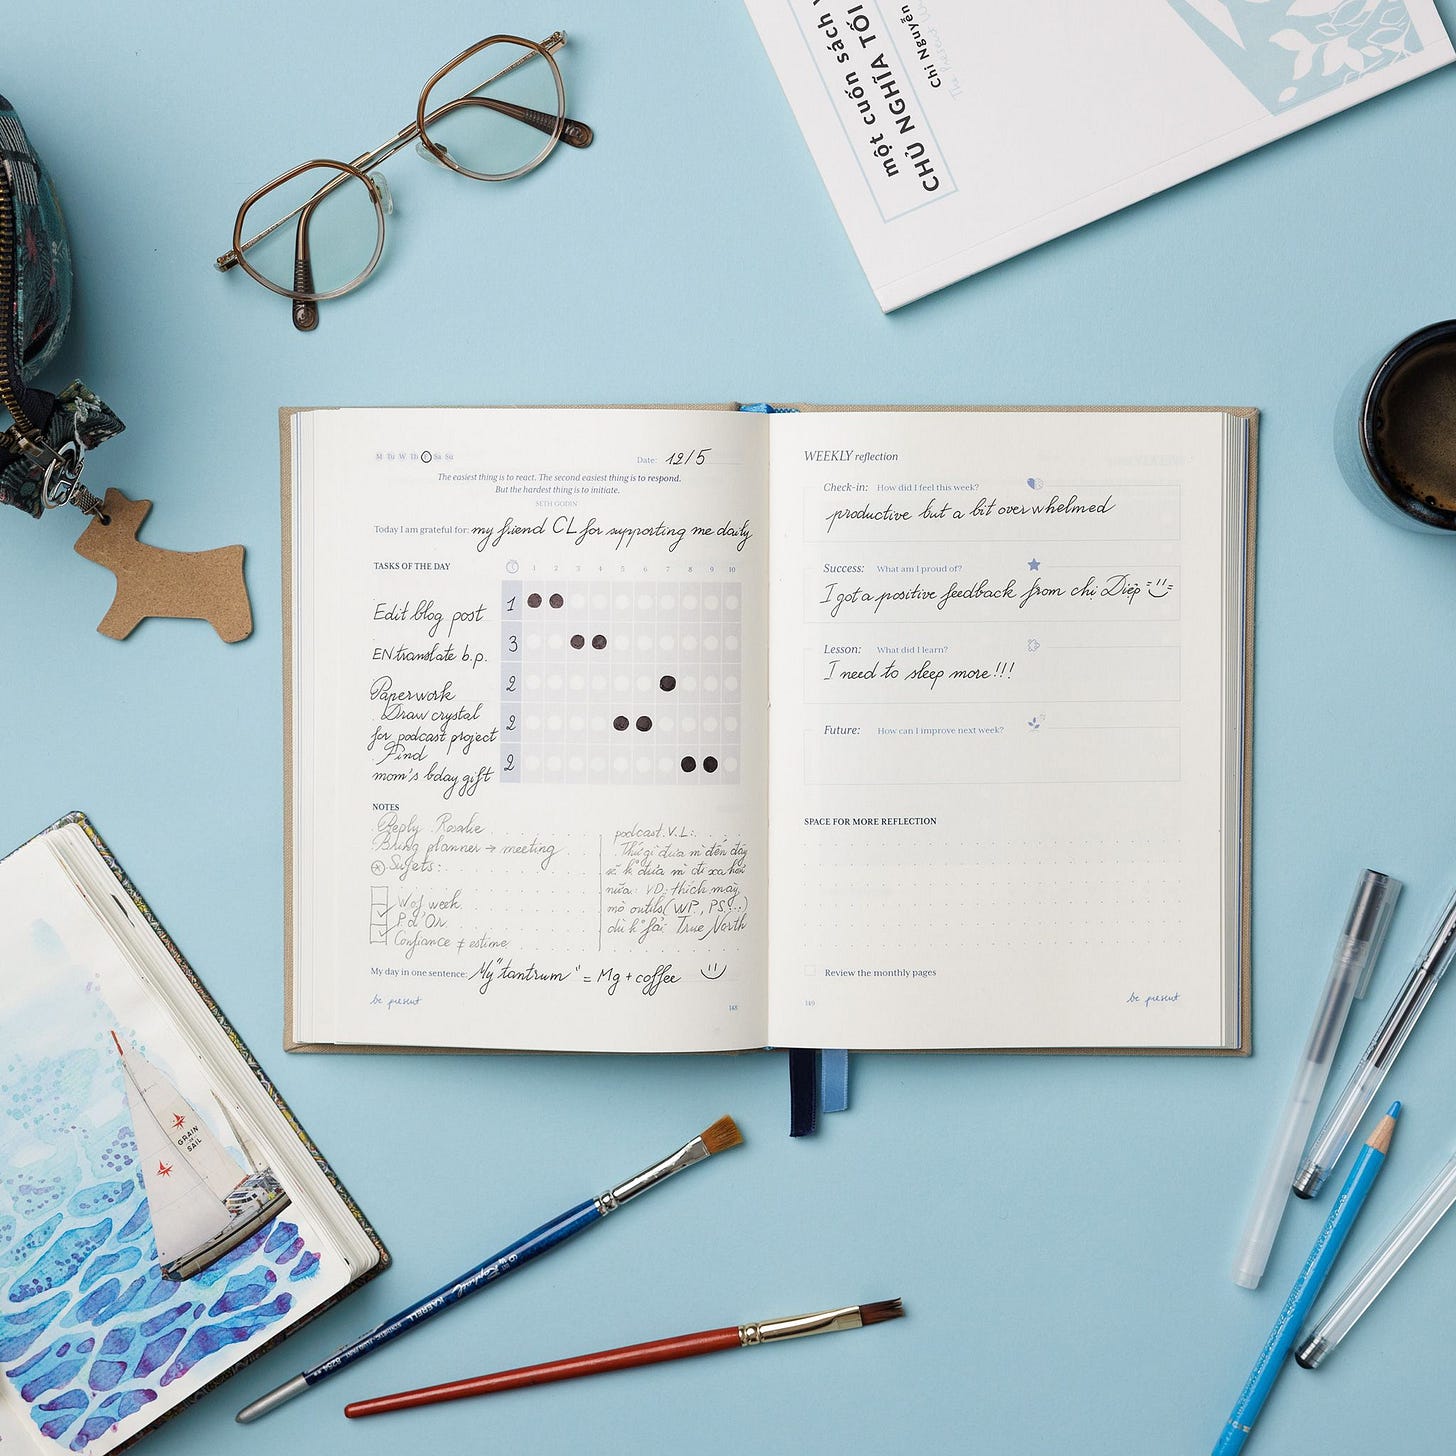 một cuốn sách
CHỦ NGHĨA TỐI
Chi Nguyễn
M Tu W Th F Sa Su
Date: 12/5
The easiest thing is to react. The second easiest thing is to respond.
But the hardest thing is to initiate.
SETH GODIN
Today I am grateful for: my friend CL for supporting me daily
TASKS OF THE DAY 1 2 3 4 5 6 7 8 9 10
Edit blog post 1
EN translate b.p. 3
Paperwork 2
Draw crystal
for podcast project 2
Find
mom's bday gift 2
NOTES
Reply Rosalie
Bring planner → meeting
Sujets:
W. of week
P. d'Or
Confiance ≠ estime
podcast V.L:
Thứ gì đưa mì đến đây
sẽ k° đưa mì đi xa hơn
nữa: VD: thích máy,
mò outils (WP, PS...)
dù k° fải True North
My day in one sentence: My "tantrum" = Mg + coffee
be present
148
WEEKLY reflection
Check-in: How did I feel this week?
productive but a bit overwhelmed
Success: What am I proud of?
I got a positive feedback from chi Diệp
Lesson: What did I learn?
I need to sleep more!!!
Future: How can I improve next week?
SPACE FOR MORE REFLECTION
Review the monthly pages
149
be present
GRAIN
de
SAIL
Raphaël
KAERELL